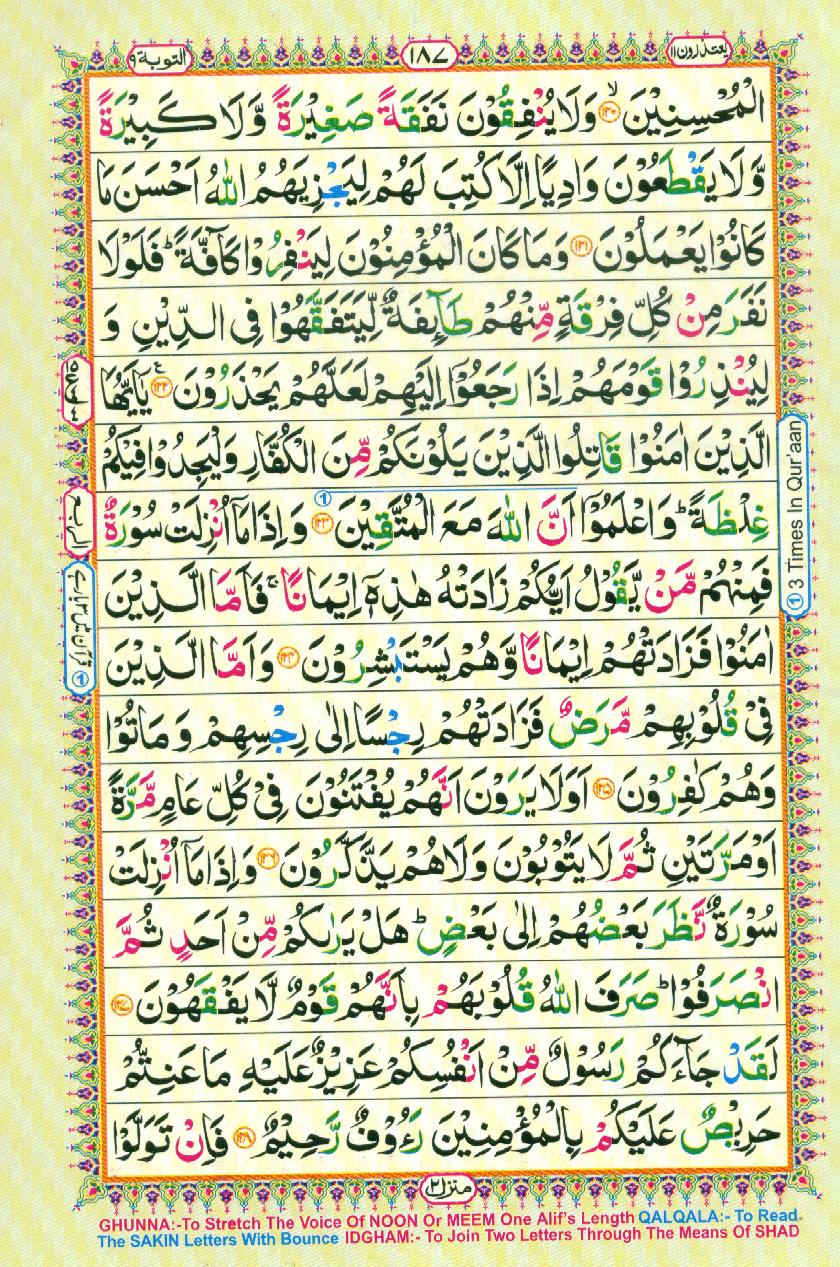 یعتذرون ۱۱
۱۸۷
التوبة ۹
الْمُحْسِنِيْنَ ۙ﴿۱۲۰﴾ وَلَا يُنْفِقُوْنَ نَفَقَةً صَغِيْرَةً وَّلَا كَبِيْرَةً
وَّلَا يَقْطَعُوْنَ وَادِيًا اِلَّا كُتِبَ لَهُمْ لِيَجْزِيَهُمُ اللّٰهُ اَحْسَنَ مَا
كَانُوْا يَعْمَلُوْنَ ﴿۱۲۱﴾ وَمَا كَانَ الْمُؤْمِنُوْنَ لِيَنْفِرُوْا كَآفَّةً ؕ فَلَوْلَا
نَفَرَ مِنْ كُلِّ فِرْقَةٍ مِّنْهُمْ طَآئِفَةٌ لِّيَتَفَقَّهُوْا فِى الدِّيْنِ وَ
لِيُنْذِرُوْا قَوْمَهُمْ اِذَا رَجَعُوْۤا اِلَيْهِمْ لَعَلَّهُمْ يَحْذَرُوْنَ ﴿۱۲۲﴾ يٰۤاَيُّهَا
الَّذِيْنَ اٰمَنُوْا قَاتِلُوا الَّذِيْنَ يَلُوْنَكُمْ مِّنَ الْكُفَّارِ وَلْيَجِدُوْا فِيْكُمْ
غِلْظَةً ؕ وَاعْلَمُوْۤا اَنَّ اللّٰهَ مَعَ الْمُتَّقِيْنَ ﴿۱۲۳﴾ وَاِذَا مَاۤ اُنْزِلَتْ سُوْرَةٌ
فَمِنْهُمْ مَّنْ يَّقُوْلُ اَيُّكُمْ زَادَتْهُ هٰذِهٖۤ اِيْمَانًا ۚ فَاَمَّا الَّذِيْنَ
اٰمَنُوْا فَزَادَتْهُمْ اِيْمَانًا وَّهُمْ يَسْتَبْشِرُوْنَ ﴿۱۲۴﴾ وَاَمَّا الَّذِيْنَ
فِىْ قُلُوْبِهِمْ مَّرَضٌ فَزَادَتْهُمْ رِجْسًا اِلٰى رِجْسِهِمْ وَمَاتُوْا
وَهُمْ كٰفِرُوْنَ ﴿۱۲۵﴾ اَوَلَا يَرَوْنَ اَنَّهُمْ يُفْتَنُوْنَ فِىْ كُلِّ عَامٍ مَّرَّةً
اَوْ مَرَّتَيْنِ ثُمَّ لَا يَتُوْبُوْنَ وَلَا هُمْ يَذَّكَّرُوْنَ ﴿۱۲۶﴾ وَاِذَا مَاۤ اُنْزِلَتْ
سُوْرَةٌ نَّظَرَ بَعْضُهُمْ اِلٰى بَعْضٍ ؕ هَلْ يَرٰىكُمْ مِّنْ اَحَدٍ ثُمَّ
انْصَرَفُوْا ؕ صَرَفَ اللّٰهُ قُلُوْبَهُمْ بِاَنَّهُمْ قَوْمٌ لَّا يَفْقَهُوْنَ ﴿۱۲۷﴾
لَقَدْ جَآءَكُمْ رَسُوْلٌ مِّنْ اَنْفُسِكُمْ عَزِيْزٌ عَلَيْهِ مَا عَنِتُّمْ
حَرِيْصٌ عَلَيْكُمْ بِالْمُؤْمِنِيْنَ رَءُوْفٌ رَّحِيْمٌ ﴿۱۲۸﴾ فَاِنْ تَوَلَّوْا
① 3 Times In Qur'aan
الربع
① قرآن میں ۳ بارہے
منزل ۲
GHUNNA:-To Stretch The Voice Of NOON Or MEEM One Alif's Length QALQALA:- To Read
The SAKIN Letters With Bounce IDGHAM:- To Join Two Letters Through The Means Of SHAD